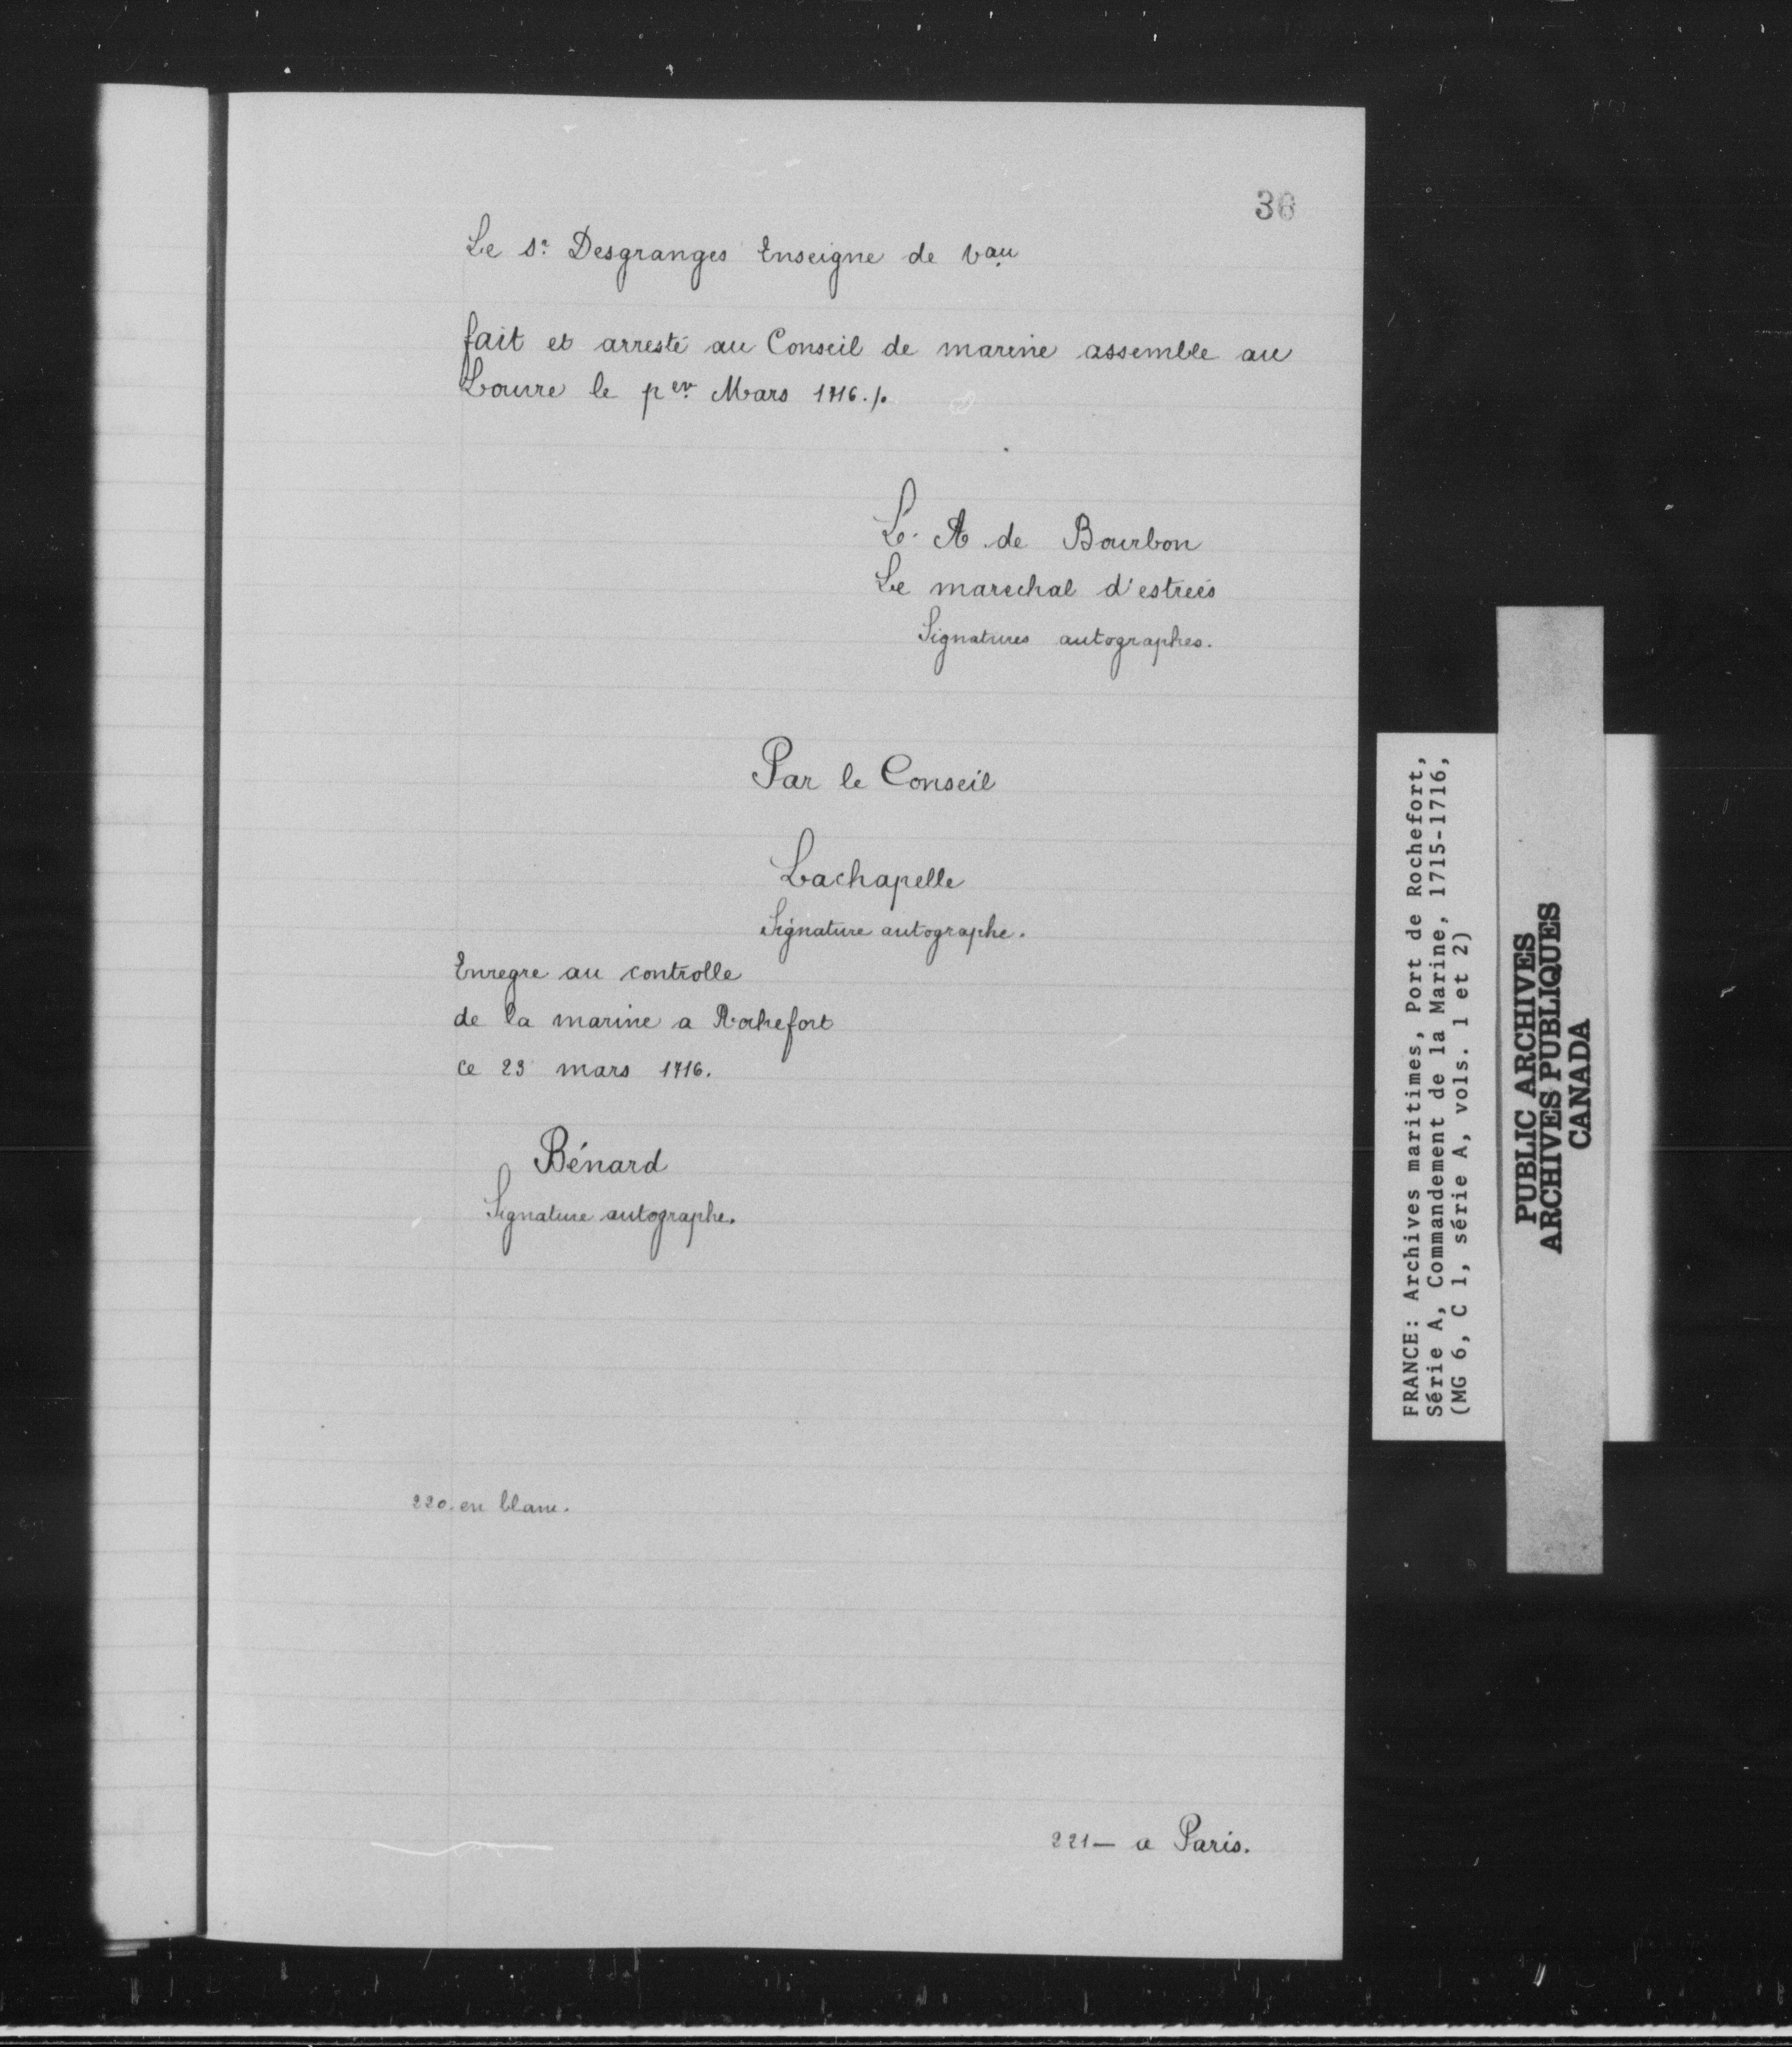 36
Le Sr. Desgranges Enseigne de Vau
fait et arresté au Conseil de marine assemble au
Louvre le per. Mars 1716. /.
L. A. de Bourbon
Le marechal d'estreés
Signatures autographes.
Par le Conseil
Lachapelle
Signature autographe.
Enregre au controlle
de la marine a Rochefort
ce 23 mars 1716.
Bénard
Signature autographe.
220. en blanc.
221 — a Paris.
FRANCE: Archives maritimes, Port de Rochefort,
Série A, Commandement de la Marine, 1715-1716,
(MG 6, C 1, série A, vols. 1 et 2)
PUBLIC ARCHIVES
ARCHIVES PUBLIQUES
CANADA